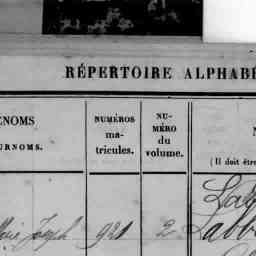 RÉPERTOIRE ALPHABÉ
ÉNOMS
URNOMS.
NUMÉROS
ma-
tricules.
NU-
MÉRO
du
volume.
N
(Il doit être
Joseph 921 2 Labb